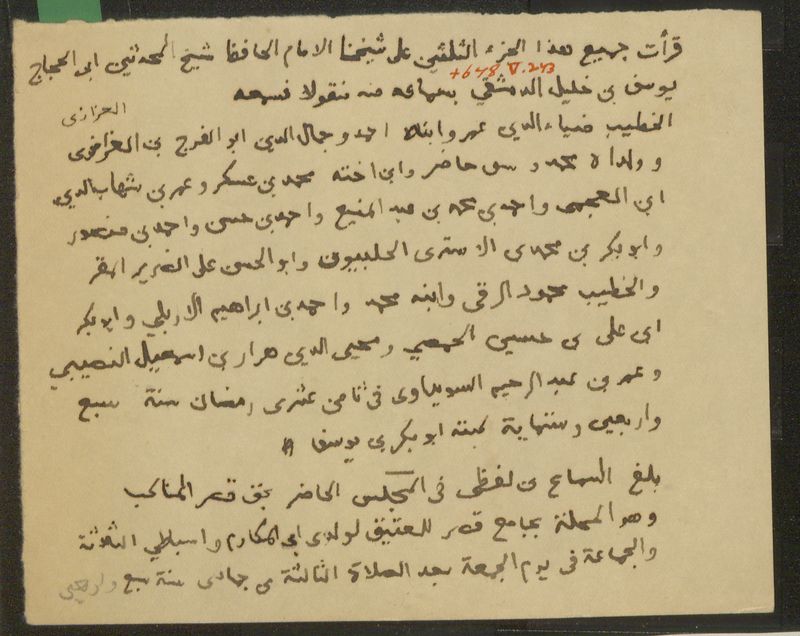 قرأت جميع هذا الجزء الثلثين على شيخنا الامام الحافظ شيخ المحدثين ابى الحجاج
+648, V. 243
يوسف بن خليل الدمشقي بسماعه منه منقولا فسمعه
العزازى
الخطيب ضياء الدين عمر وابناه احمد وجمال الدين ابو الفرج بن
وولداه محمد و حاضر وابن اخته محمد بن عسكر وعمر بن شهاب الدين
ابن العجمى واحمد بن محمد بن عبد المنيع واحمد بن حسن واحمد بن منصور
وابو بكر بن محمد بن الاسترى الحلبيون وابو الحسن على الضرير المقر
والخطيب محمود الرقى وابنه محمد واحمد بن ابراهيم الاربلي وابو بكر
ابن على بن حسين الحمصي ومحيى الدين هزار بن اسمعيل النصيبي
وعمر بن عبد الرحيم السويداوى فى ثامن عشرى رمضان سنة سبع
واربعين وستماية كتبه ابو بكر بن يوسف
بلغ السماع من لفظى فى المجلس الحاضر بحق
وهو المحلة بجامع العتيق لولدى ابى المكارم واسباطي الثلاثة
والجماعة فى يوم الجمعة بعد الصلاة الثالثة من جمادى سنة سبع واربعين